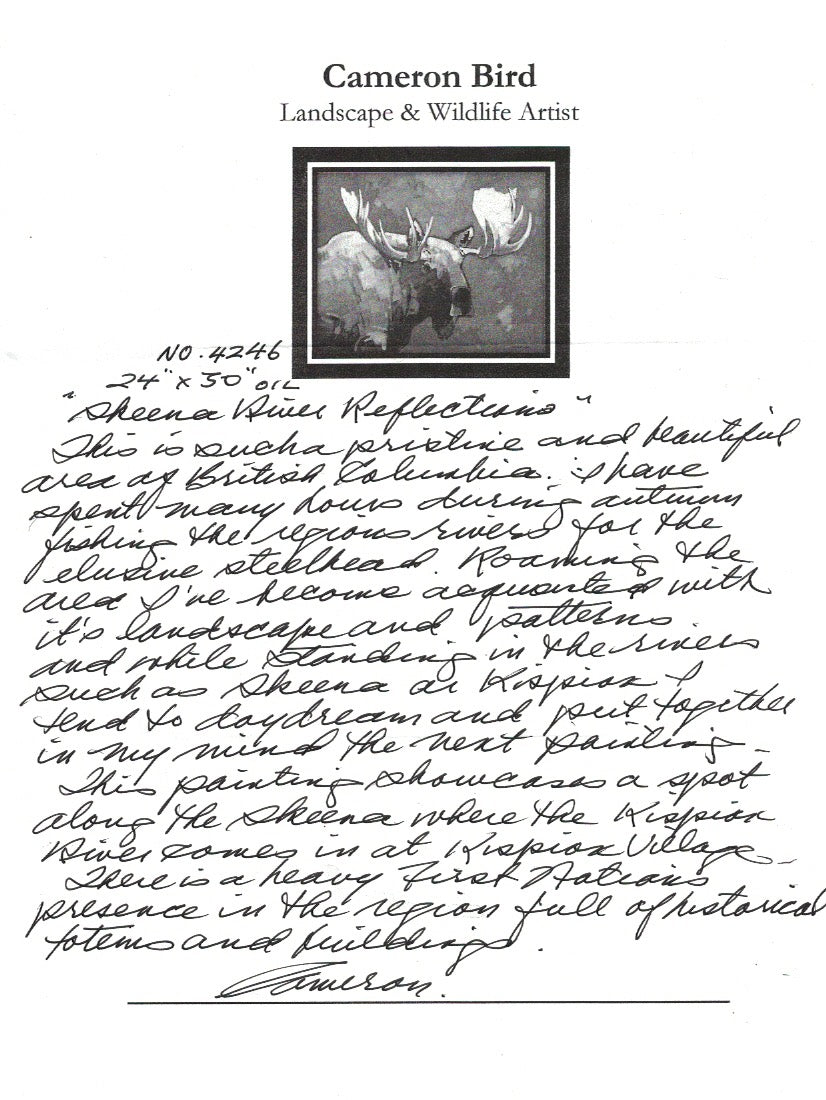 Cameron Bird
Landscape & Wildlife Artist
NO. 4246
24" x 30" OIL
"Skeena River Reflections"
This is such a pristine and beautiful
area of British Columbia. I have
spent many hours during autumn
fishing the regions rivers for the
elusive steelhead. Roaming the
area I've become acquainted with
it's landscape and patterns
and while standing in the rivers
such as Skeena or Kispiox I
tend to daydream and put together
in my mind the next painting.
This painting showcases a spot
along the Skeena where the Kispiox
River comes in at Kispiox Village.
There is a heavy First Nations
presence in the region full of historical
totems and buildings.
Cameron.